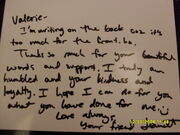 Valerie-
I'm writing on the back coz it's
too much for the front. ha.
Thanks so much for your beautiful
words and support. I truly am
humbled and your kindness and
loyalty. I hope I can do for you
what you have done for me.
Love always,
your friend